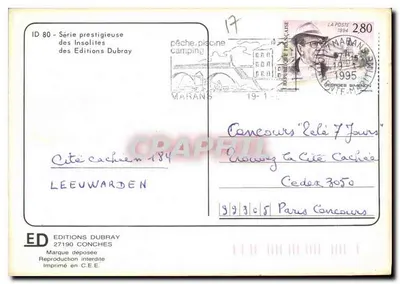 ID 80 - Série prestigieuse
des Insolites
des Editions Dubray
17
pêche.piscine
camping
MARANS
19-1
REPUBLIQUE FRANÇAISE
LA POSTE
1994
2,80
MARANS
1995
Concours "Télé 7 Jours"
Trouvez la Cité Cachée
Cedex 3050
99365 Paris Concours
Cité cachée 184
LEEUWARDEN
ED EDITIONS DUBRAY
27190 CONCHES
Marque déposée
Reproduction interdite
Imprimé en C.E.E.